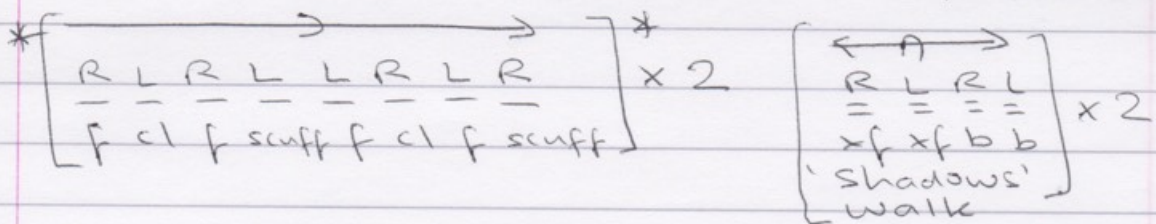 * [ R L R L L R L R ] * × 2
f cl f scuff f cl f scuff
[ R L R L ] × 2
xf xf b b
'Shadows'
walk